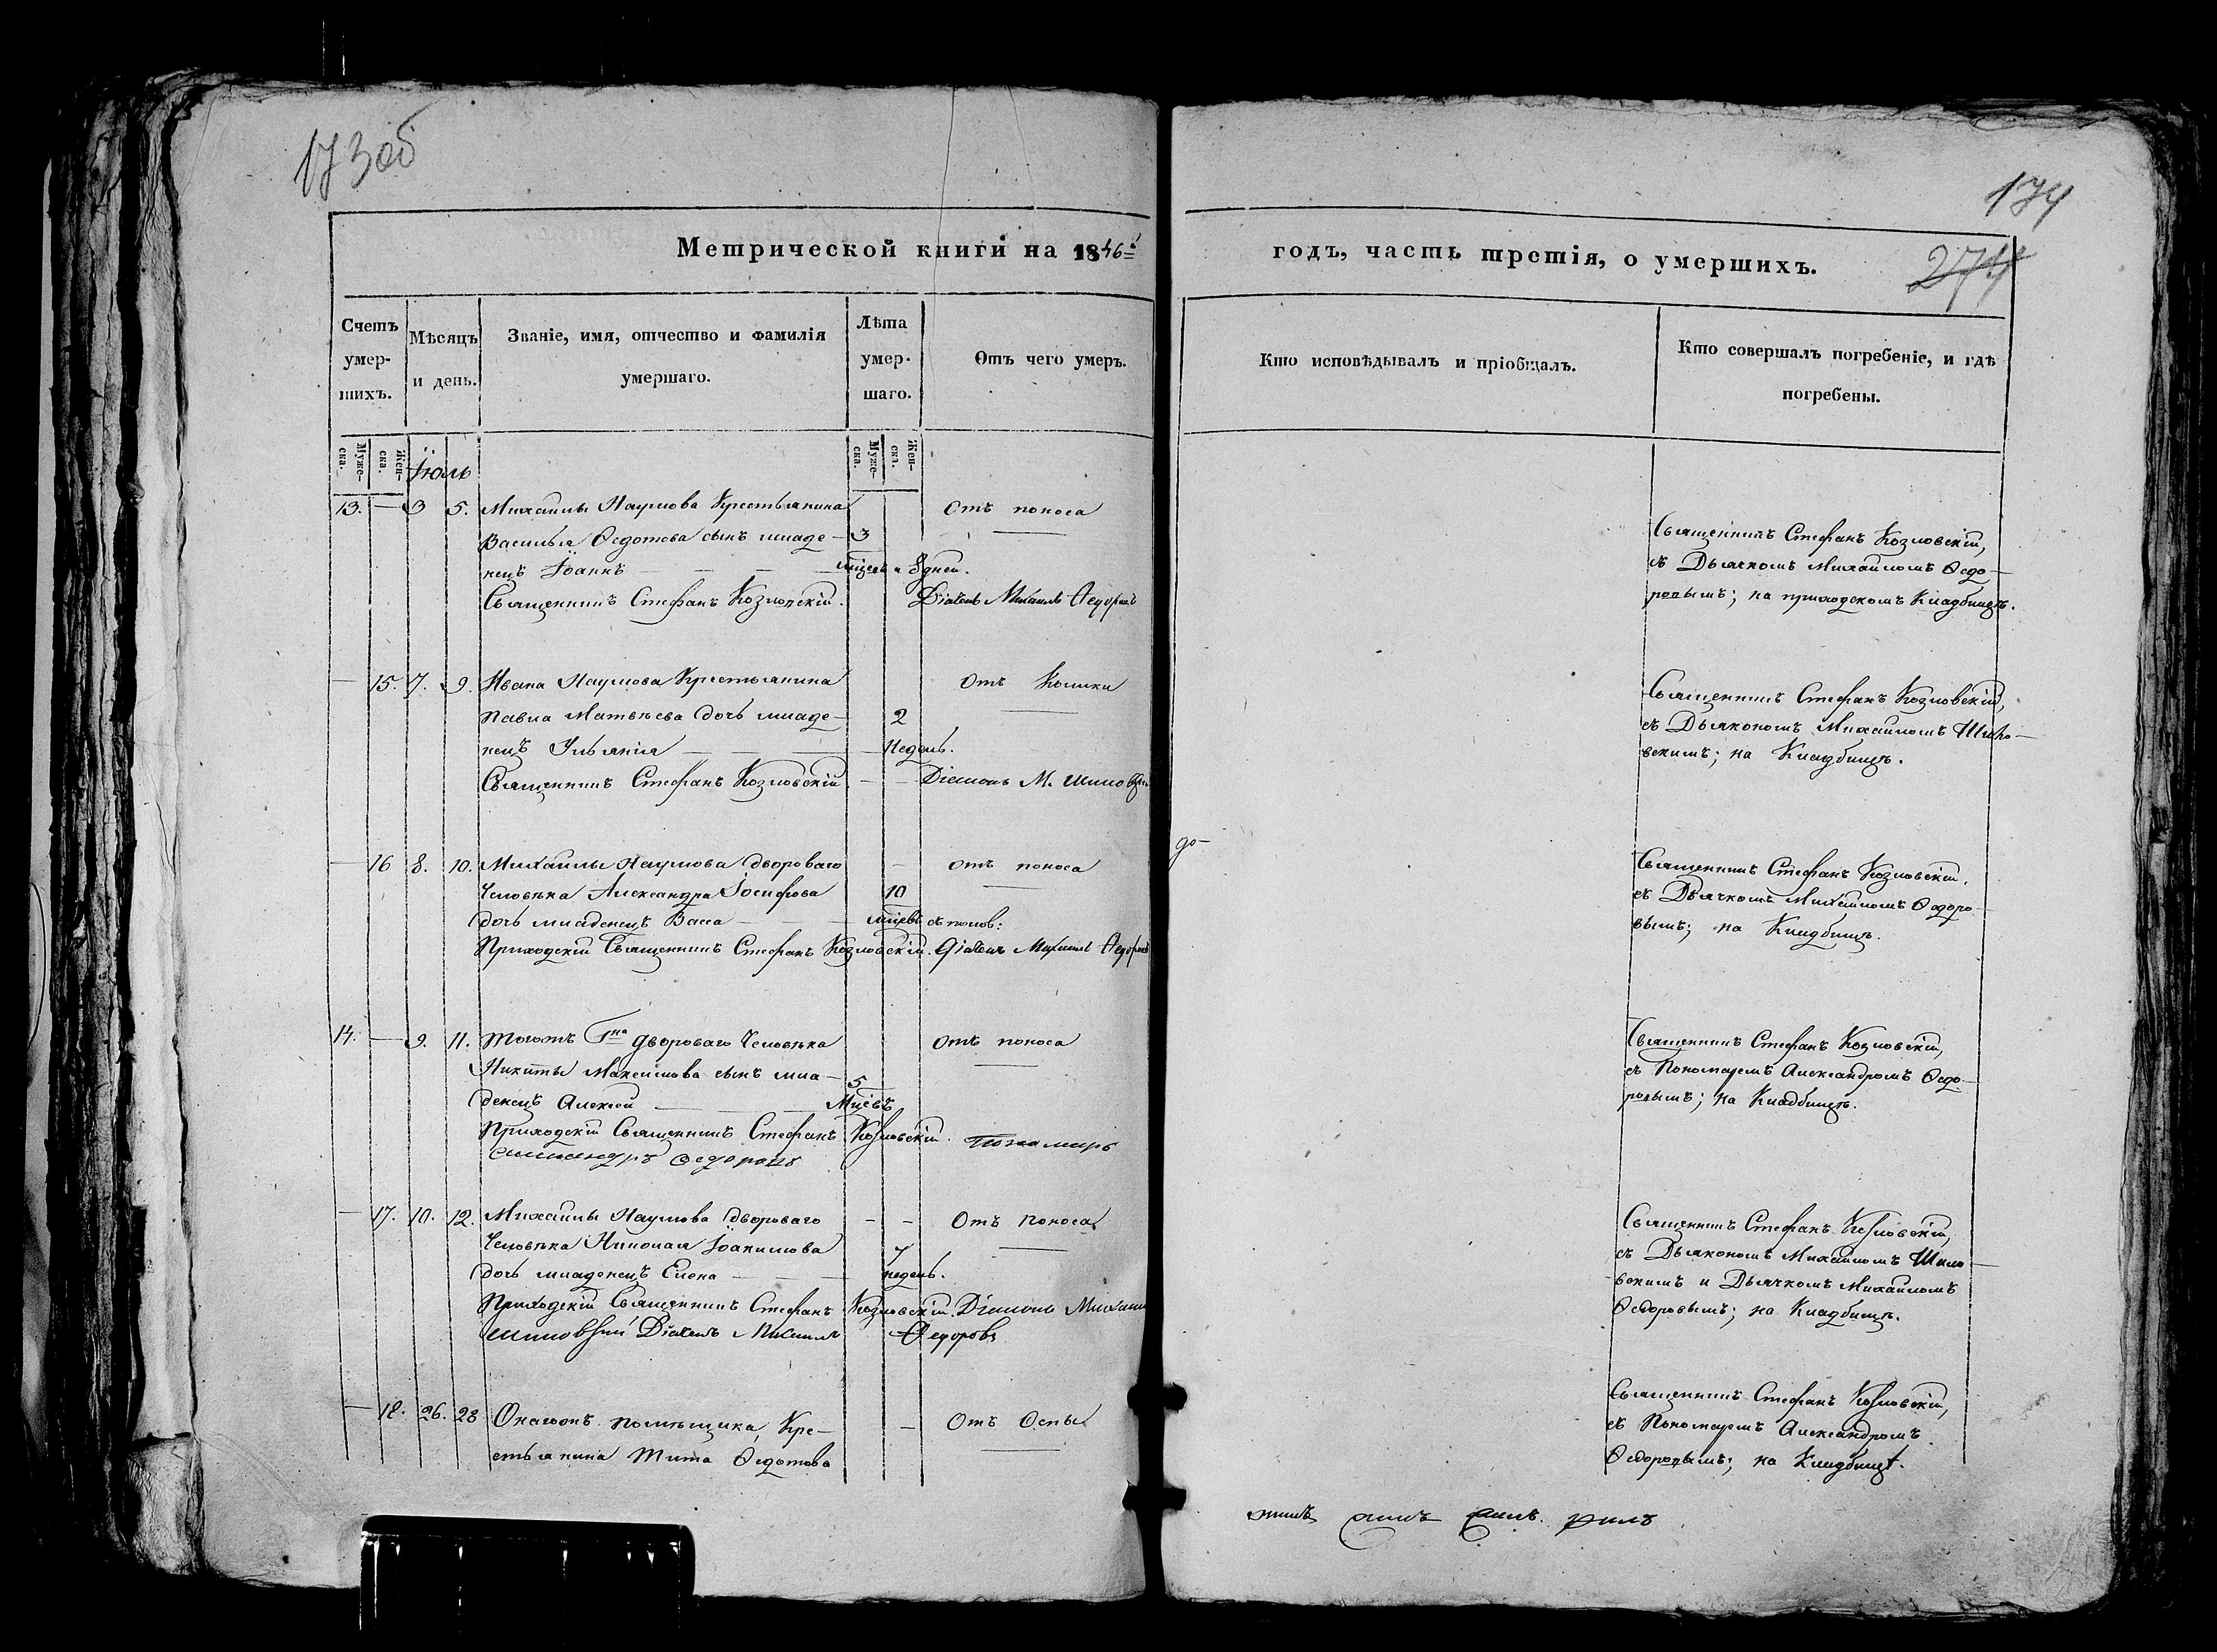 173об
174
274
Метрической книги на 1846й
годъ, часть третія, о умершихъ.
Счетъ умер-шихъ.
Мѣсяцъ и день.
Званіе, имя, отчество и фамилія умершаго.
Лѣта умер-шаго.
Отъ чего умеръ.
Кто исповѣдывалъ и пріобщалъ.
Кто совершалъ погребеніе, и гдѣ погребены.
Муже-ска.
Жен-ска.
Муже-ска.
Жен-ска.
Іюль
13. — 3 5. Михаилы Наумова Крестьянина Отъ поноса
Василья Ѳедотова сынъ младе- 3
нецъ Іоаннъ — — — мѣсяц. и 8 дней.
Священникъ Стефанъ Козловскій. Діачекъ Михаилъ Ѳедоровъ
Священникъ Стефанъ Козловскій,
съ Дьячкомъ Михаиломъ Ѳедо-
ровымъ; на приходскомъ Кладбищѣ.
— 15. 7. 9. Ивана Наумова Крестьянина Отъ Колики
Павла Матвѣева дочь младе- 2
нецъ Ульянія — — — Недель.
Священникъ Стефанъ Козловскій — — Діаконъ М. Шиловскій
Священникъ Стефанъ Козловскій,
съ Дьякономъ Михаиломъ Шило-
вскимъ; на Кладбищѣ.
— 16 8. 10. Михаилы Наумова двороваго — отъ поноса
до-
Человѣка Александра Іосифова 10
дочь младенецъ Васса — — — мцевъ съ полов:
Приходскій Священникъ Стефанъ Козловскій. Діачекъ Михаилъ Ѳедоровъ
Священникъ Стефанъ Козловскій.
съ Дьячкомъ Михаиломъ Ѳедоро-
вымъ; на Кладбищѣ.
14. — 9. 11. Тогожъ Гна двороваго Человѣка Отъ поноса
Никиты Максимова сынъ мла- 5
денецъ Алексей — — — Мцевъ
Приходскій Священникъ Стефанъ Козловскій. Пономарь
Александръ Ѳедоровъ
Священникъ Стефанъ Козловскій,
съ Пономаремъ Александромъ Ѳедо-
ровымъ; на Кладбищѣ.
— 17. 10. 12. Михаилы Наумова двороваго — — Отъ поноса
Человѣка Николая Іоакимова 7
дочь младенецъ Елена — — — недель.
Приходскій Священникъ Стефанъ Козловскій. Діаконъ Михаилъ
Шиловскій Діачекъ Михаилъ Ѳедоровъ
Священникъ Стефанъ Козловскій,
съ Дьякономъ Михаиломъ Шило-
вскимъ и Дьячкомъ Михаиломъ
Ѳедоровымъ; на Кладбищѣ.
— 18. 26. 28 Онагожъ помѣщика, Кре- — Отъ Оспы
стьянина Тита Ѳедотова
Священникъ Стефанъ Козловскій,
съ Пономаремъ Александромъ
Ѳедоровымъ; на Кладбищѣ.